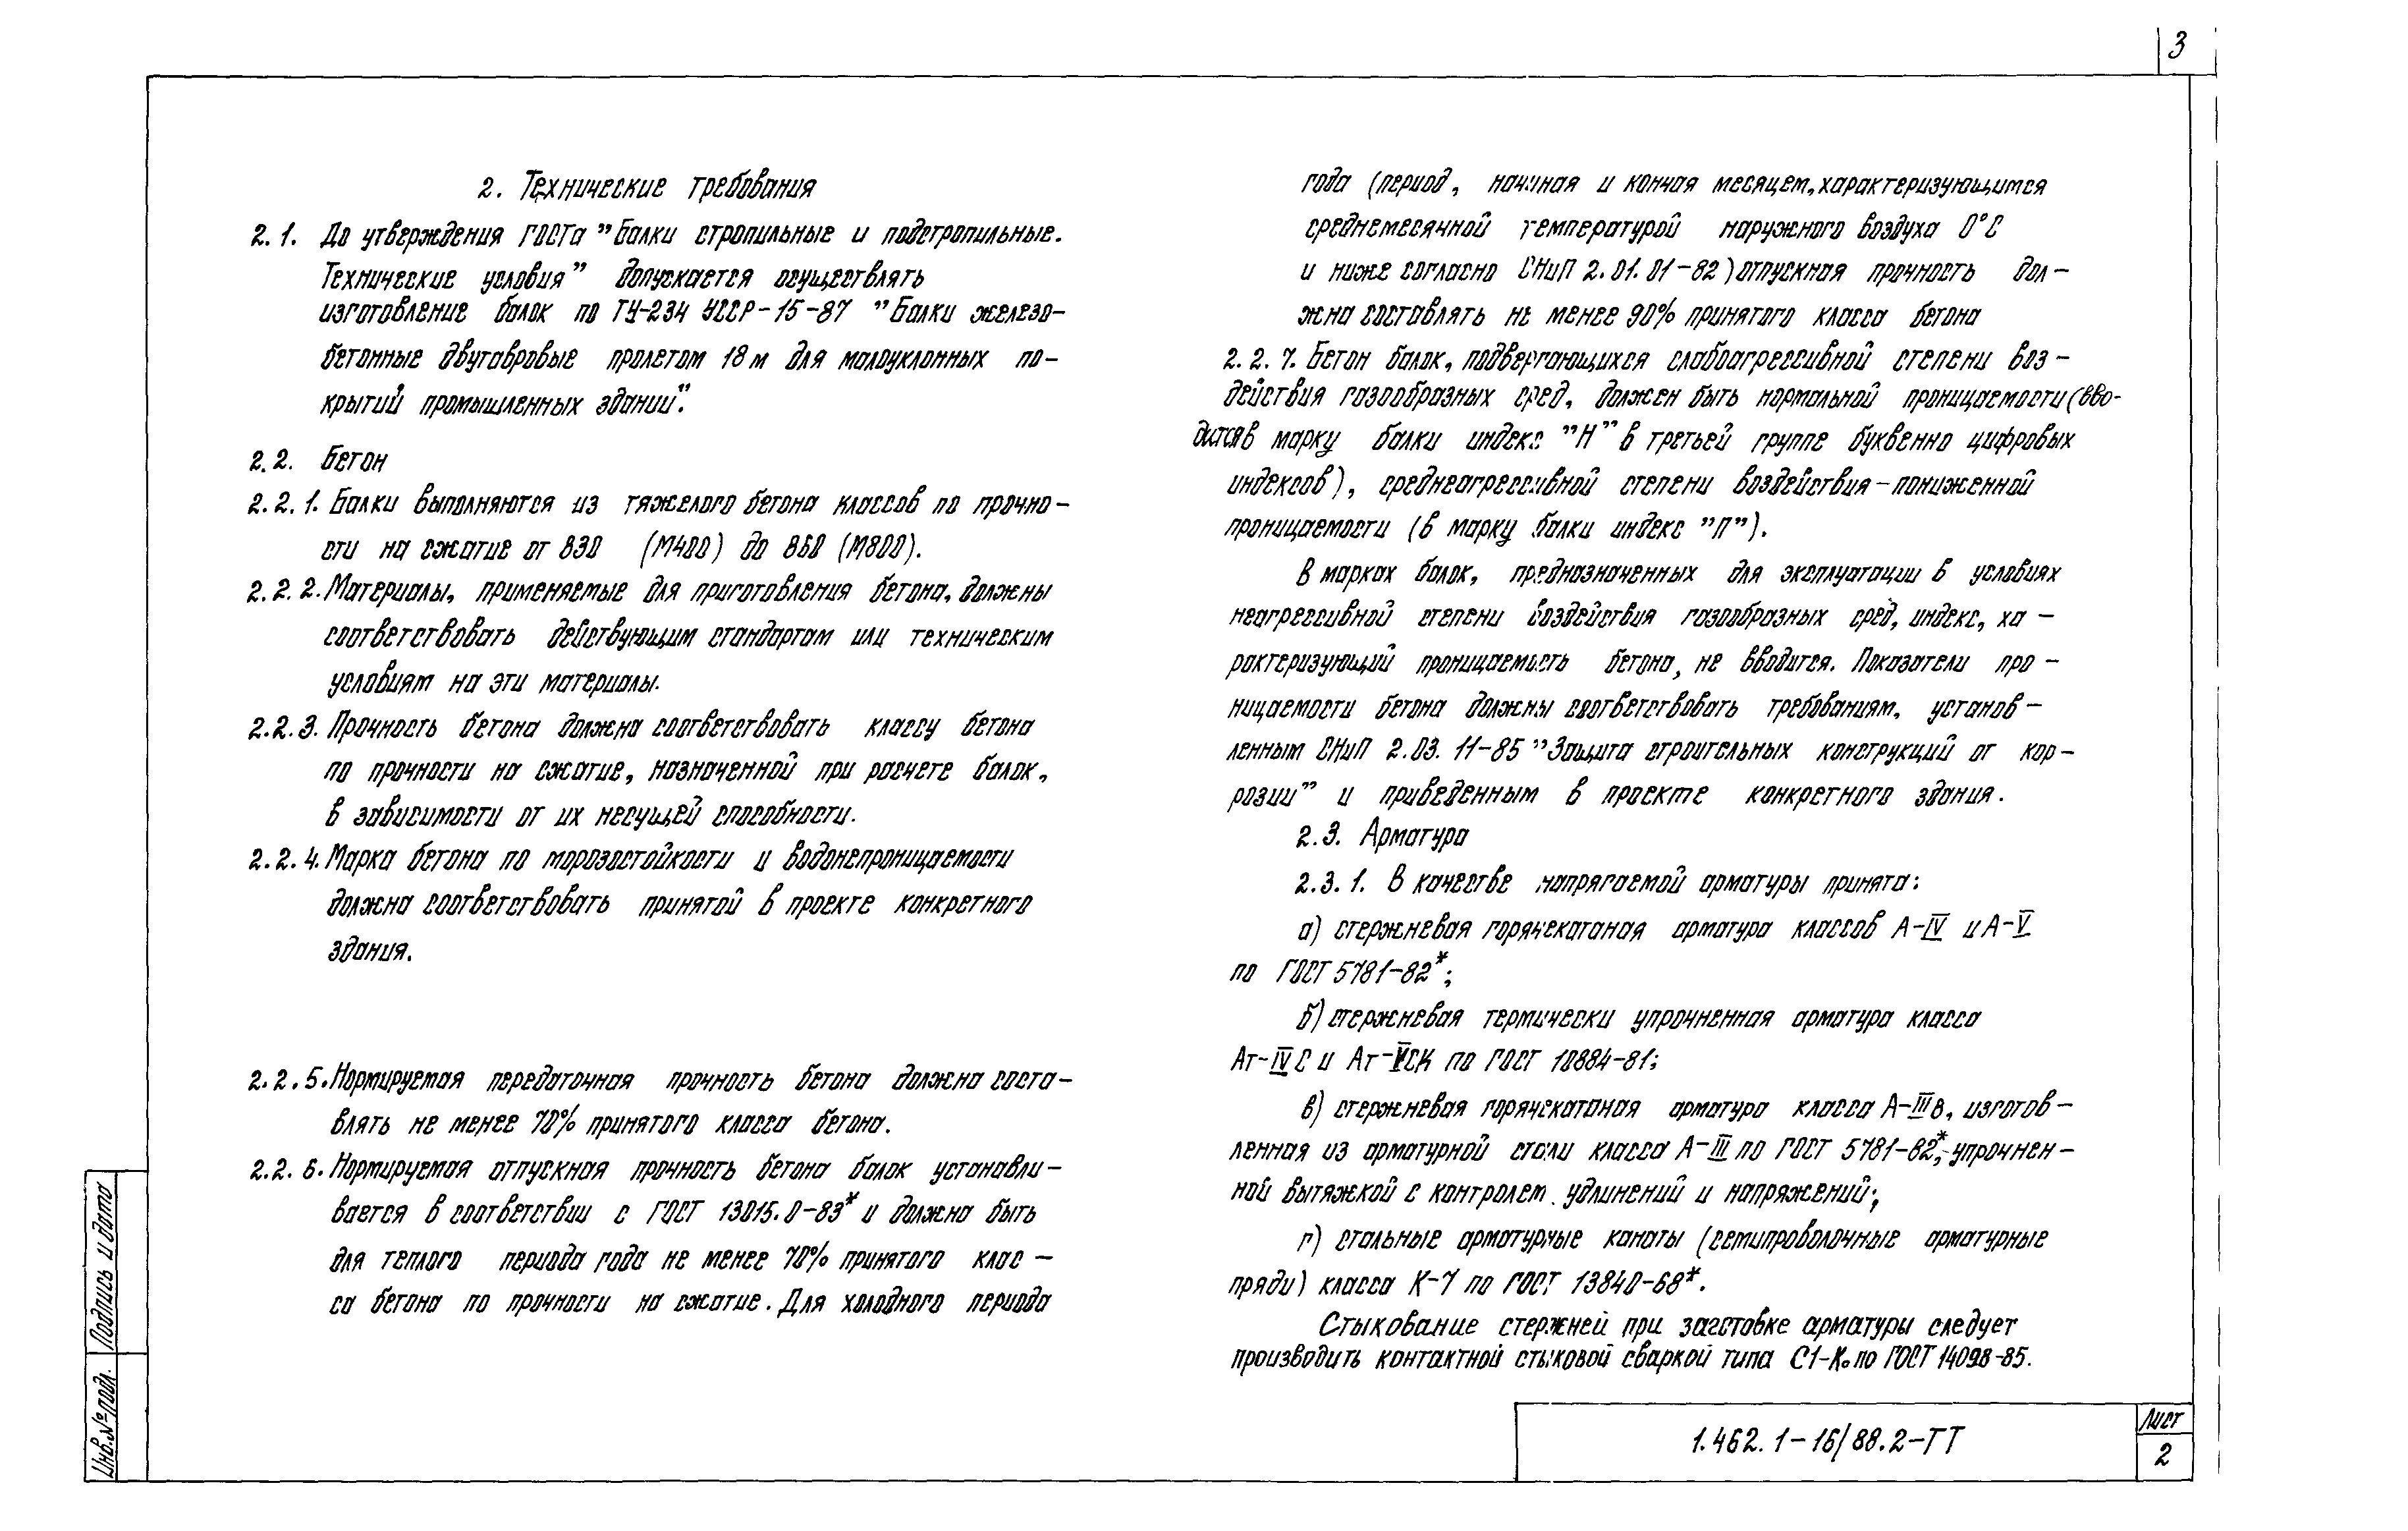 3
2. Технические требования
2.1. До утверждения ГОСТа "Балки стропильные и подстропильные.
Технические условия" допускается осуществлять
изготовление балок по ТУ-234 УССР-15-87 "Балки железо-
бетонные двутавровые пролетом 18 м для малоуклонных по-
крытий промышленных зданий".
2.2. Бетон
2.2.1. Балки выполняются из тяжелого бетона классов по прочно-
сти на сжатие от В30 (М400) до В60 (М800).
2.2.2. Материалы, применяемые для приготовления бетона, должны
соответствовать действующим стандартам или техническим
условиям на эти материалы.
2.2.3. Прочность бетона должна соответствовать классу бетона
по прочности на сжатие, назначенной при расчете балок,
в зависимости от их несущей способности.
2.2.4. Марка бетона по морозостойкости и водонепроницаемости
должна соответствовать принятой в проекте конкретного
здания.
2.2.5. Нормируемая передаточная прочность бетона должна соста-
влять не менее 70% принятого класса бетона.
2.2.6. Нормируемая отпускная прочность бетона балок устанавли-
вается в соответствии с ГОСТ 13015.0-83* и должна быть
для теплого периода года не менее 70% принятого клас-
са бетона по прочности на сжатие. Для холодного периода
года (период, начиная и кончая месяцем, характеризующимся
среднемесячной температурой наружного воздуха 0°С
и ниже согласно СНиП 2.01.01-82) отпускная прочность дол-
жна составлять не менее 90% принятого класса бетона
2.2.7. Бетон балок, подвергающихся слабоагрессивной степени воз-
действия газообразных сред, должен быть нормальной проницаемости (вво-
дится в марку балки индекс "Н" в третьей группе буквенно цифровых
индексов), среднеагрессивной степени воздействия-пониженной
проницаемости (в марку балки индекс "П").
В марках балок, предназначенных для эксплуатации в условиях
неагрессивной степени воздействия газообразных сред, индекс, ха-
рактеризующий проницаемость бетона, не вводится. Показатели про-
ницаемости бетона должны соответствовать требованиям, установ-
ленным СНиП 2.03.11-85 "Защита строительных конструкций от кор-
розии" и приведенным в проекте конкретного здания.
2.3. Арматура
2.3.1. В качестве напрягаемой арматуры принята:
а) стержневая горячекатаная арматура классов А-IV и А-V
по ГОСТ 5781-82*;
б) стержневая термически упрочненная арматура класса
Ат-IVС и Ат-VСК по ГОСТ 10884-81;
в) стержневая горячекатаная арматура класса А-IIIв, изготов-
ленная из арматурной стали класса А-III по ГОСТ 5781-82*, упрочнен-
ной вытяжкой с контролем удлинений и напряжений;
г) стальные арматурные канаты (семипроволочные арматурные
пряди) класса К-7 по ГОСТ 13840-68*.
Стыкование стержней при заготовке арматуры следует
производить контактной стыковой сваркой типа С1-Ко по ГОСТ 14098-85.
Инв.№подл.
Подпись и дата
1.462.1-16/88.2-ТТ
Лист
2